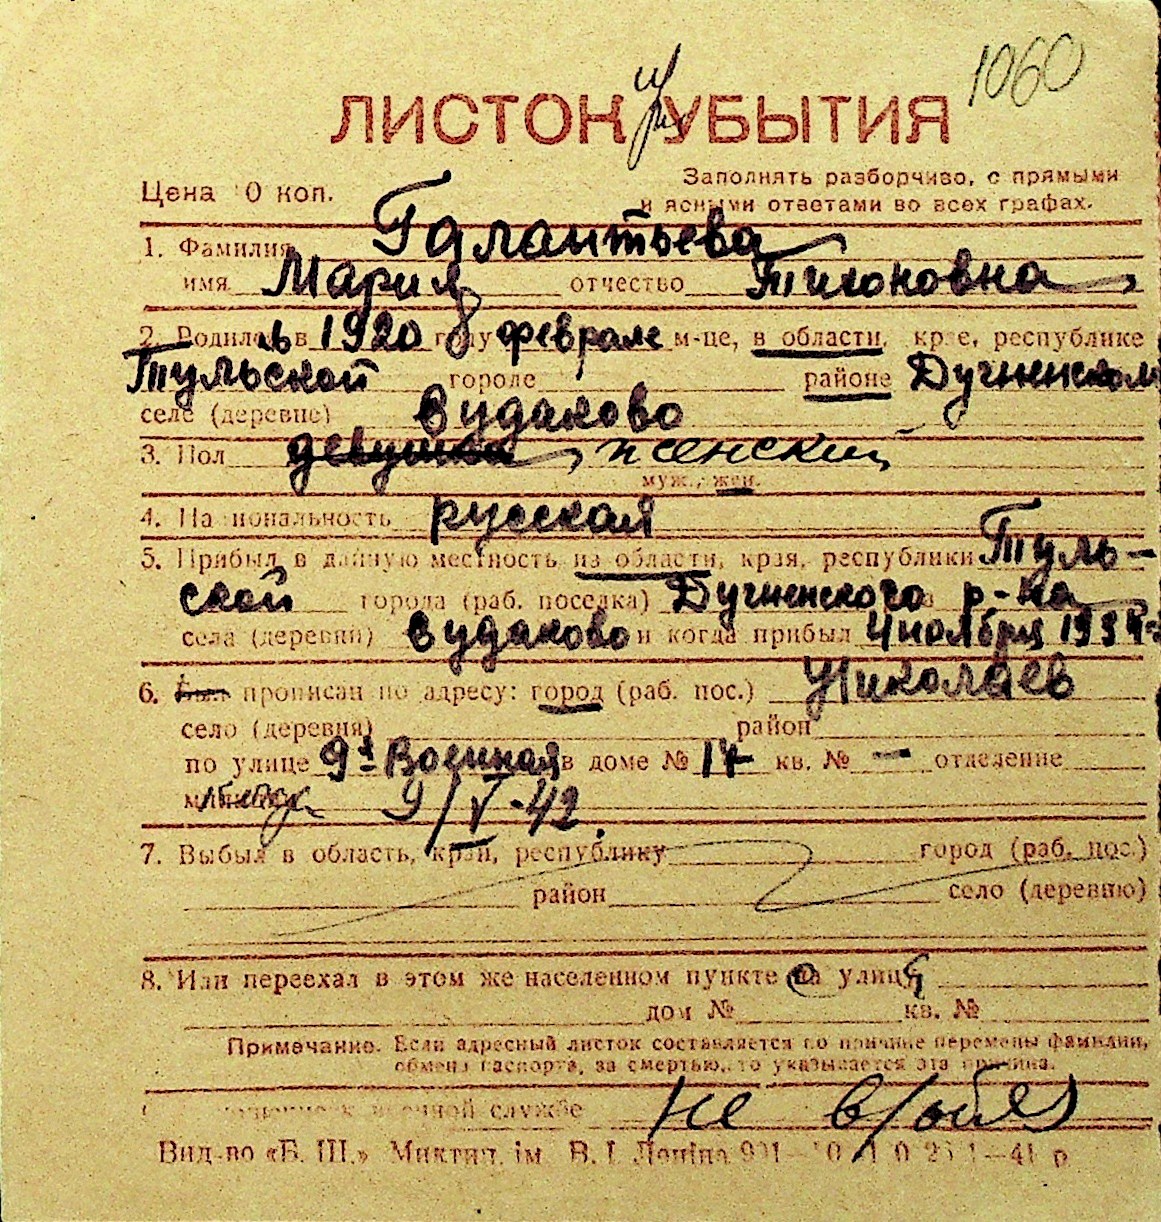 1060
ЛИСТОК УБЫТИЯ
при
Цена 10 коп.
Заполнять разборчиво, с прямыми
и ясными ответами во всех графах.
1. Фамилия Галантьева
имя Мария отчество Тихоновна
2. Родилась в 1920 году феврале м-це, в области, крае, республике
Тульской городе районе Дугненском
селе (деревне) Вудаково
3. Пол девушка женский
муж., жен.
4. Национальность русская
5. Прибыл в данную местность из области, края, республики Туль-
ской города (раб. поселка) Дугненского р-на
села (деревни) Вудаково и когда прибыл 4 ноября 1939 г
6. Был прописан по адресу: город (раб. пос.) Николаев
село (деревня) район
по улице 9я Военная в доме № 17 кв. № — отделение
9/V-42.
7. Выбыл в область, край, республику город (раб. пос.)
район село (деревню)
8. Или переехал в этом же населенном пункте на улицу
дом № кв. №
Примечание. Если адресный листок составляется по причине перемены фамилии,
обмена паспорта, за смертью, то указывается эта причина.
военной службе не
Вид-во «Б. Ш.» Миктип. ім. В. І. Леніна